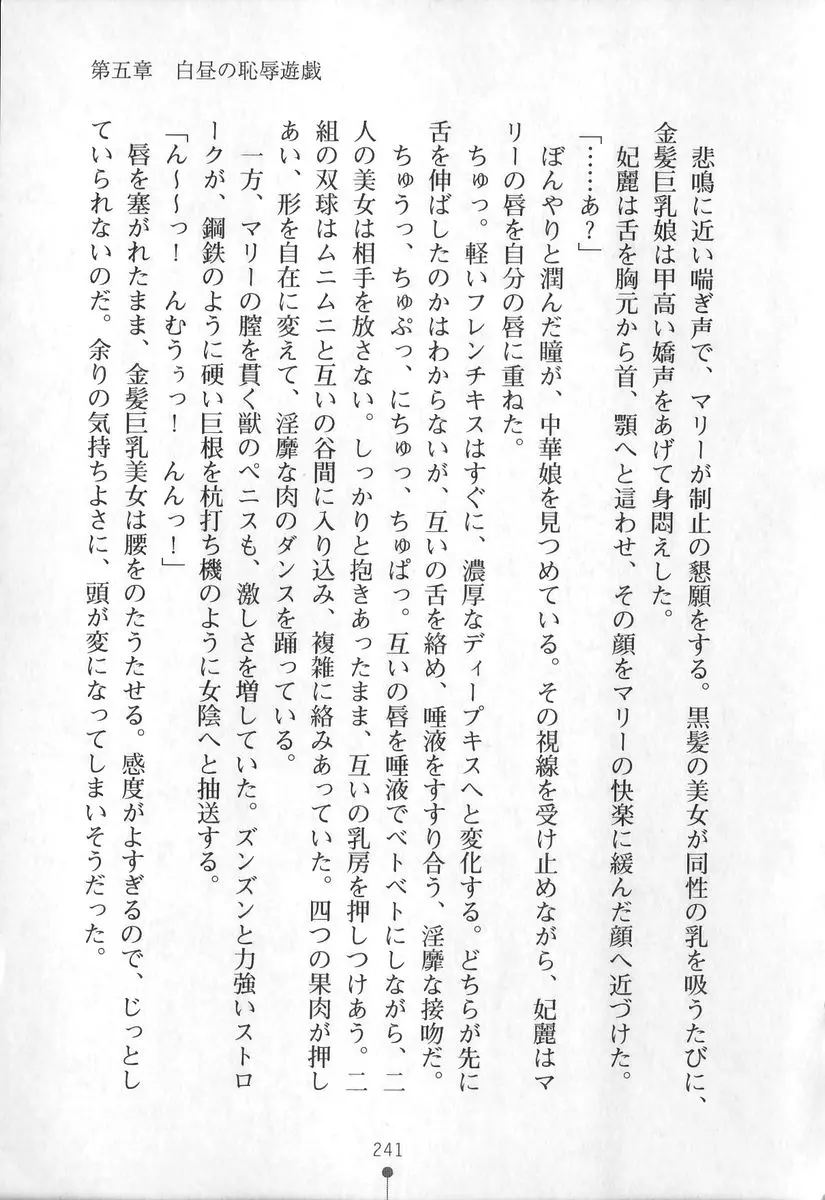 第五章　白昼の恥辱遊戯
悲鳴に近い喘ぎ声で、マリーが制止の懇願をする。黒髪の美女が同性の乳を吸うたびに、
金髪巨乳娘は甲高い嬌声をあげて身悶えした。
妃麗は舌を胸元から首、顎へと這わせ、その顔をマリーの快楽に緩んだ顔へ近づけた。
「……あ？」
ぼんやりと潤んだ瞳が、中華娘を見つめている。その視線を受け止めながら、妃麗はマ
リーの唇を自分の唇に重ねた。
ちゅっ。軽いフレンチキスはすぐに、濃厚なディープキスへと変化する。どちらが先に
舌を伸ばしたのかはわからないが、互いの舌を絡め、唾液をすすり合う、淫靡な接吻だ。
ちゅうっ、ちゅぷっ、にちゅっ、ちゅぱっ。互いの唇を唾液でベトベトにしながら、二
人の美女は相手を放さない。しっかりと抱きあったまま、互いの乳房を押しつけあう。二
組の双球はムニムニと互いの谷間に入り込み、複雑に絡みあっていた。四つの果肉が押し
あい、形を自在に変えて、淫靡な肉のダンスを踊っている。
一方、マリーの膣を貫く獣のペニスも、激しさを増していた。ズンズンと力強いストロ
ークが、鋼鉄のように硬い巨根を杭打ち機のように女陰へと抽送する。
「ん～～っ！　んむうぅっ！　んんっ！」
唇を塞がれたまま、金髪巨乳美女は腰をのたうたせる。感度がよすぎるので、じっとし
ていられないのだ。余りの気持ちよさに、頭が変になってしまいそうだった。
241